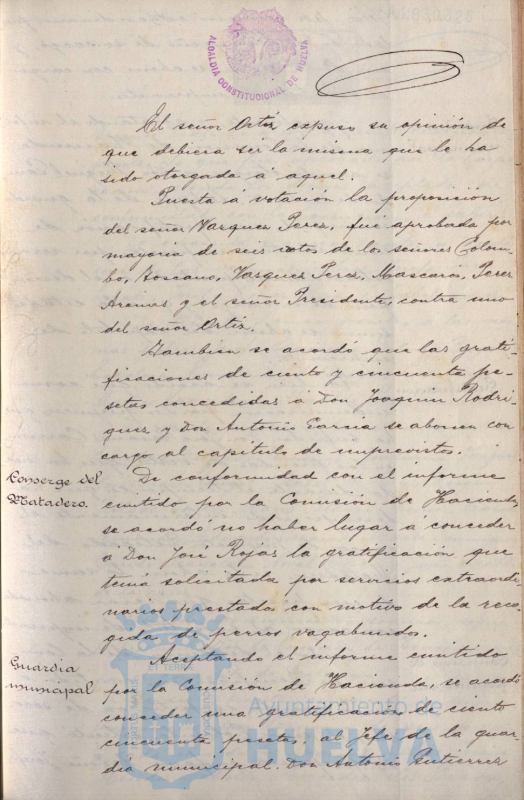 ALCALDIA CONSTITUCIONAL DE HUELVA
El señor Ortiz expuso su opinión de
que debiera ser la misma que le ha
sido otorgada á aquel.
Puesta á votación la proposición
del señor Vazquez Perez, fué aprobada por
mayoria de seis votos de los señores Colom-
bo, Toscano, Vazquez Perez, Mascaros, Perez
Arenas y el señor Presidente, contra uno
del señor Ortiz.
Tambien se acordó que las grati-
ficaciones de ciento y cincuenta pe-
setas concedidas á Don Joaquin Rodri-
guez y Don Antonio Garcia se abonen con
cargo al capitulo de imprevistos.
Conserge del
Matadero.
De conformidad con el informe
emitido por la Comisión de Hacienda,
se acordó no haber lugar a conceder
á Don José Rojas la gratificación que
tenia solicitada por servicios extraordi-
narios prestados con motivo de la reco-
gida de perros vagabundos.
Guardia
municipal
Aceptando el informe emitido
por la Comisión de Hacienda, se acordó
conceder una gratificación de ciento
cincuenta pesetas, al Jefe de la guar-
dia municipal. Don Antonio Gutierrez
Ayuntamiento de
HUELVA